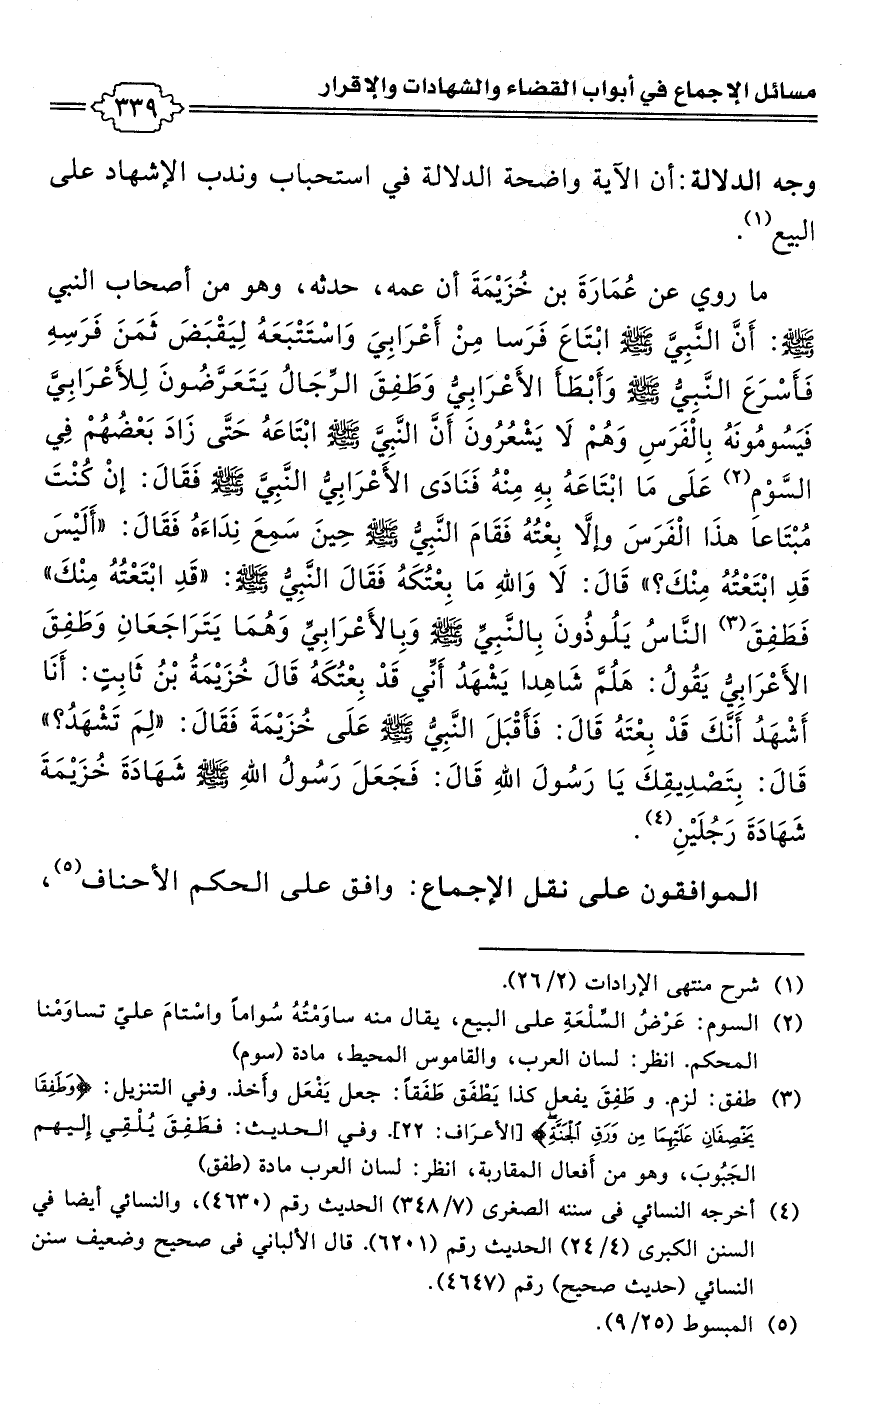 مسائل الإجماع في أبواب القضاء والشهادات والإقرار
٣٣٩
وجه الدلالة: أن الآية واضحة الدلالة في استحباب وندب الإشهاد على
البيع(١).
ما روي عن عُمَارَةَ بن خُزَيْمَةَ أن عمه، حدثه، وهو من أصحاب النبي
ﷺ: أَنَّ النَّبِيَّ ﷺ ابْتَاعَ فَرَسا مِنْ أَعْرَابِيّ وَاسْتَتْبَعَهُ لِيَقْبَضَ ثَمَنَ فَرَسِهِ
فَأَسْرَعَ النَّبِيُّ ﷺ وَأَبْطَأَ الأَعْرَابِيُّ وَطَفِقَ الرِّجَالُ يَتَعَرَّضُونَ لِلأَعْرَابِيَّ
فَيَسُومُونَهُ بِالْفَرَسِ وَهُمْ لَا يَشْعُرُونَ أَنَّ النَّبِيَّ ﷺ ابْتَاعَهُ حَتَّى زَادَ بَعْضُهُمْ فِي
السَّوْمِ(٢) عَلَى مَا ابْتَاعَهُ بِهِ مِنْهُ فَنَادَى الأَعْرَابِيُّ النَّبِيَّ ﷺ فَقَالَ: إِنْ كُنْتَ
مُبْتَاعا هذَا الْفَرَسَ وإلَّا بِعْتُهُ فَقَامَ النَّبِيُّ ﷺ حِينَ سَمِعَ نِدَاءَهُ فَقَالَ: «أَلَيْسَ
قَدِ ابْتَعْتُهُ مِنْكَ؟» قَالَ: لَا وَاللهِ مَا بِعْتُكَهُ فَقَالَ النَّبِيُّ ﷺ: «قَدِ ابْتَعْتُهُ مِنْكَ»
فَطَفِقَ(٣) النَّاسُ يَلُوذُونَ بِالنَّبِيِّ ﷺ وَبِالأَعْرَابِيِّ وَهُمَا يَتَرَاجَعَانِ وَطَفِقَ
الأَعْرَابِيُّ يَقُولُ: هَلُمَّ شَاهِدا يَشْهَدُ أَنِّي قَدْ بِعْتُكَهُ قَالَ خُزَيْمَةُ بْنُ ثَابِتٍ: أَنَا
أَشْهَدُ أَنَّكَ قَدْ بِعْتَهُ قَالَ: فَأَقْبَلَ النَّبِيُّ ﷺ عَلَى خُزَيْمَةَ فَقَالَ: «لِمَ تَشْهَدُ؟»
قَالَ: بِتَصْدِيقِكَ يَا رَسُولَ اللهِ قَالَ: فَجَعَلَ رَسُولُ اللهِ ﷺ شَهَادَةَ خُزَيْمَةَ
شَهَادَةَ رَجُلَيْنِ(٤).
الموافقون على نقل الإجماع: وافق على الحكم الأحناف(٥)،
(١) شرح منتهى الإرادات (٢/ ٢٦).
(٢) السوم: عَرْضُ السِّلْعَةِ على البيع، يقال منه ساوَمْتُهُ سُواماً واسْتامَ عليّ تساوَمْنا
المحكم. انظر: لسان العرب، والقاموس المحيط، مادة (سوم)
(٣) طفق: لزم. و طَفِقَ يفعل كذا يَطْفَق طَفَقاً: جعل يَفْعَل وأخذ. وفي التنزيل: ﴿وَطَفِقَا
يَخْصِفَانِ عَلَيْهِمَا مِن وَرَقِ الْجَنَّةِ﴾ [الأعراف: ٢٢]. وفي الحديث: فطَفِقَ يُلْقِي إليهم
الجَبُوبَ، وهو من أفعال المقاربة، انظر: لسان العرب مادة (طفق)
(٤) أخرجه النسائي فى سننه الصغرى (٧/ ٣٤٨) الحديث رقم (٤٦٣٠)، والنسائي أيضا في
السنن الكبرى (٤/ ٢٤) الحديث رقم (٦٢٠١). قال الألباني فى صحيح وضعيف سنن
النسائي (حديث صحيح) رقم (٤٦٤٧).
(٥) المبسوط (٢٥/ ٩).